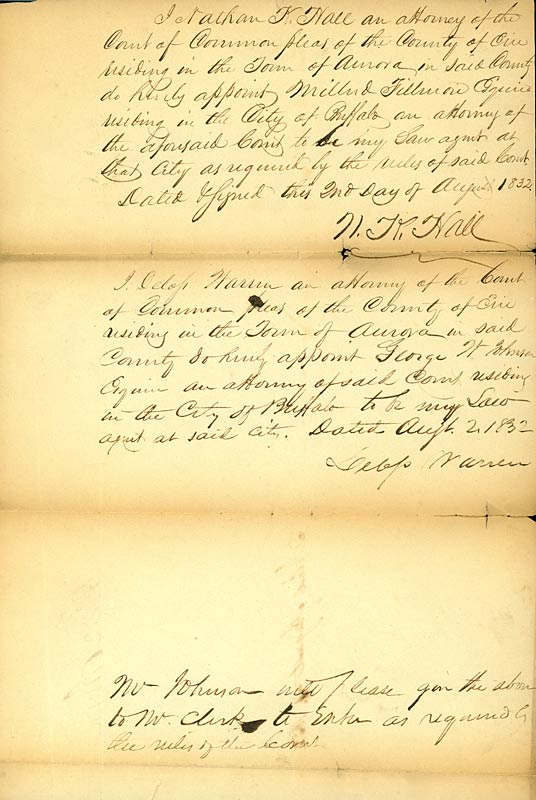 I Nathan K. Hall an attorney of the
Court of Common pleas of the County of Erie
residing in the Town of Aurora in said County
do hereby appoint Millard Fillmore Esquire
residing in the City of Buffalo an attorney of
the aforesaid Court to be my Law agent at
that City as required by the rules of said Court
Dated & Signed this 2nd Day of August 1832.
N. K. Hall
I. Warren an attorney of the Court
of Common pleas of the County of Erie
residing in the Town of Aurora in said
County do hereby appoint George W Johnson
Esquire an attorney of said Court residing
in the City of Buffalo to be my Law
agent at said City. Dated Augt. 2. 1832
Warren
Mr Johnson will please give the above
to Mr. Clerk to Enter as required by
the rules of the Court